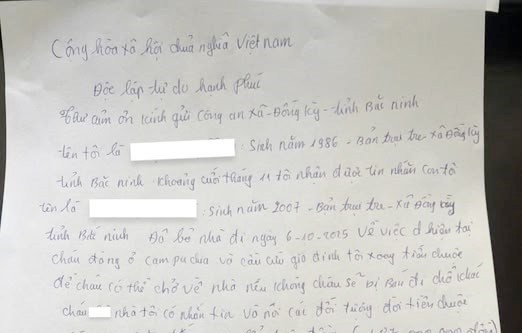 Cộng hòa xã hội chủ nghĩa Việt nam
Độc lập tự do hạnh phúc
Thư cảm ơn kính gửi Công an xã - Đông kỳ - tỉnh Bắc ninh
tên tôi là : Sinh năm 1986 - Bản trại tre - xã Đông kỳ
tỉnh Bắc ninh khoảng cuối tháng 11 tôi nhận được tin nhắn con tôi
tên là : Sinh năm 2007 - Bản trại tre - xã Đông kỳ
tỉnh Bắc ninh Đã bỏ nhà đi ngày 6-10-2025 về việc d hiện tại
cháu đang ở cam pu chia và cầu cứu gia đình tôi xoay tiền chuộc
để cháu có thể chở về nhà nếu không cháu sẽ bị Bán đi chỗ khác
cháu nhà tôi có nhắn tin và nói các đối tượng đòi tiền chuộc